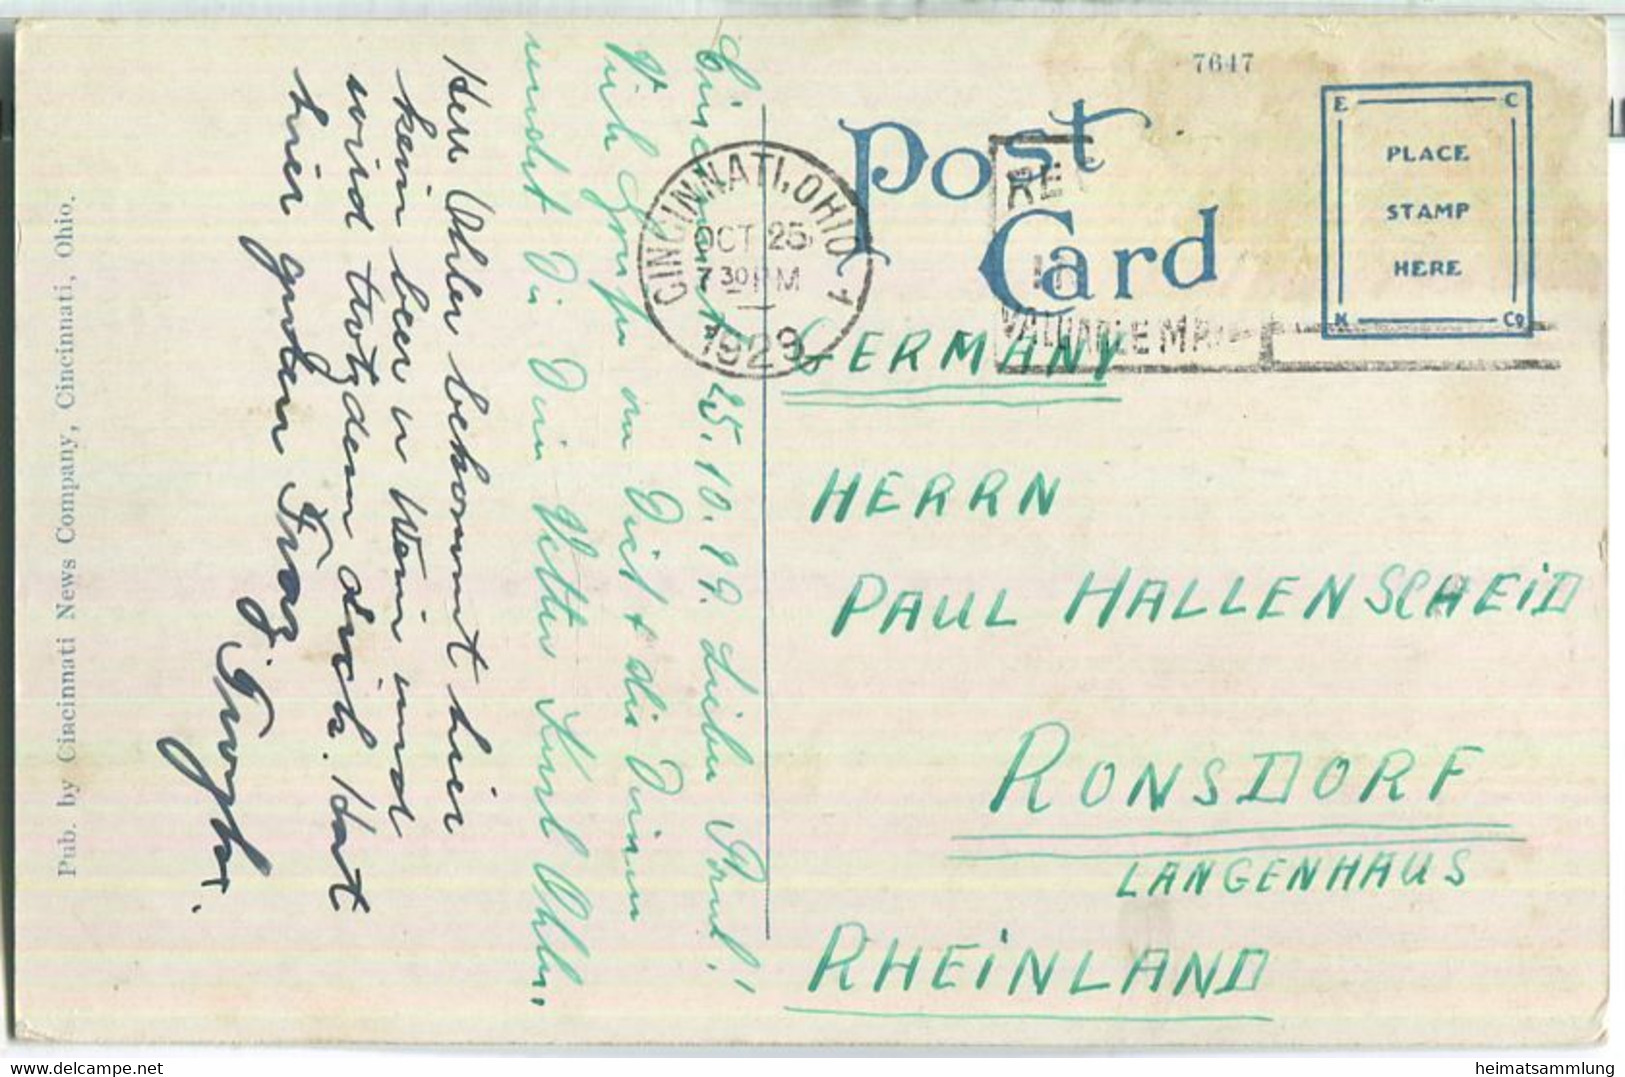 7647
Post
Card
E C
PLACE
STAMP
HERE
K Co
CINCINNATI, OHIO 1
OCT 25
7 30 PM
1929
VALUABLE MAIL
GERMANY
HERRN
PAUL HALLENSCHEID
RONSDORF
LANGENHAUS
RHEINLAND
Cincinnati 25.10.29. Lieber Paul!
Viele Grüße an Dich & die Deinen
sendet Dir Dein Vetter Karl Ohler.
Herr Ohler bekommt hier
kein beer u Wein und
wird trotzdem dick. Hat
hier guten Frag
Pub. by Cincinnati News Company, Cincinnati, Ohio.
heimatsammlung
www.delcampe.net